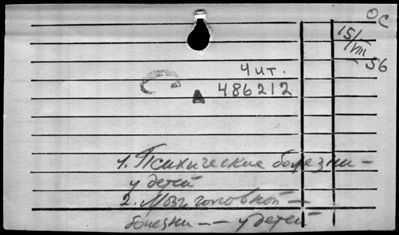 ОС
15/VIII 56
Чит.
486212
1. Психические болезни —
у детей
2. Мозг головной —
болезни — — у детей